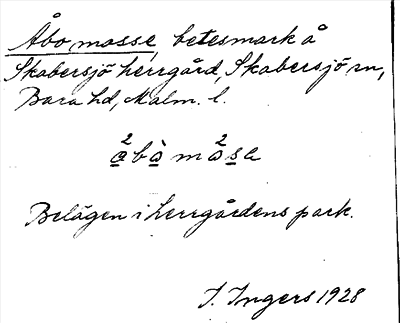 Åbo mosse, betesmark å
Skabersjö herrgård, Skabersjö sn,
Bara hd, Malm. l.
2 2
a̲bò̲mo̲s̲a
Belägen i herrgårdens park.
I. Ingers 1928